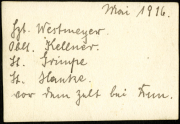 Mai 1916.
Hptl. Westmeyer.
Obll. Kellner.
Lt. Grimpe
Lt. Hanke.
vor dem Zelt bei